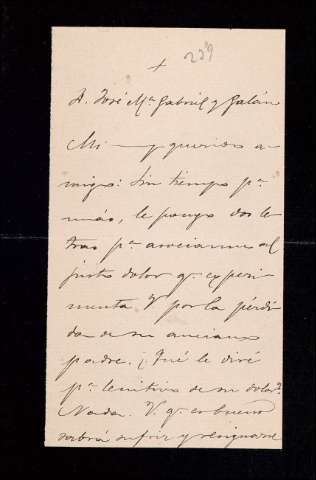 229
+
D. José Mª Gabriel y Galán
Mi muy querido a-
migo: Sin tiempo pª
más, le pongo dos le-
tras pª asociarme al
justo dolor qe experi-
menta V por la pérdi-
da de su anciano
padre. ¿Qué le diré
pª lenitivo de su dolor?
Nada. V. qe es bueno
sabrá sufrir y resignarse